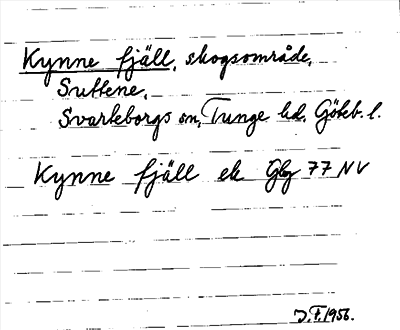 Kynne fjäll, skogsområde,
Suttene,
Svarteborgs sn, Tunge hd. Göteb. l.
Kynne fjäll ek Gbg 77 NV
J.F. 1956.